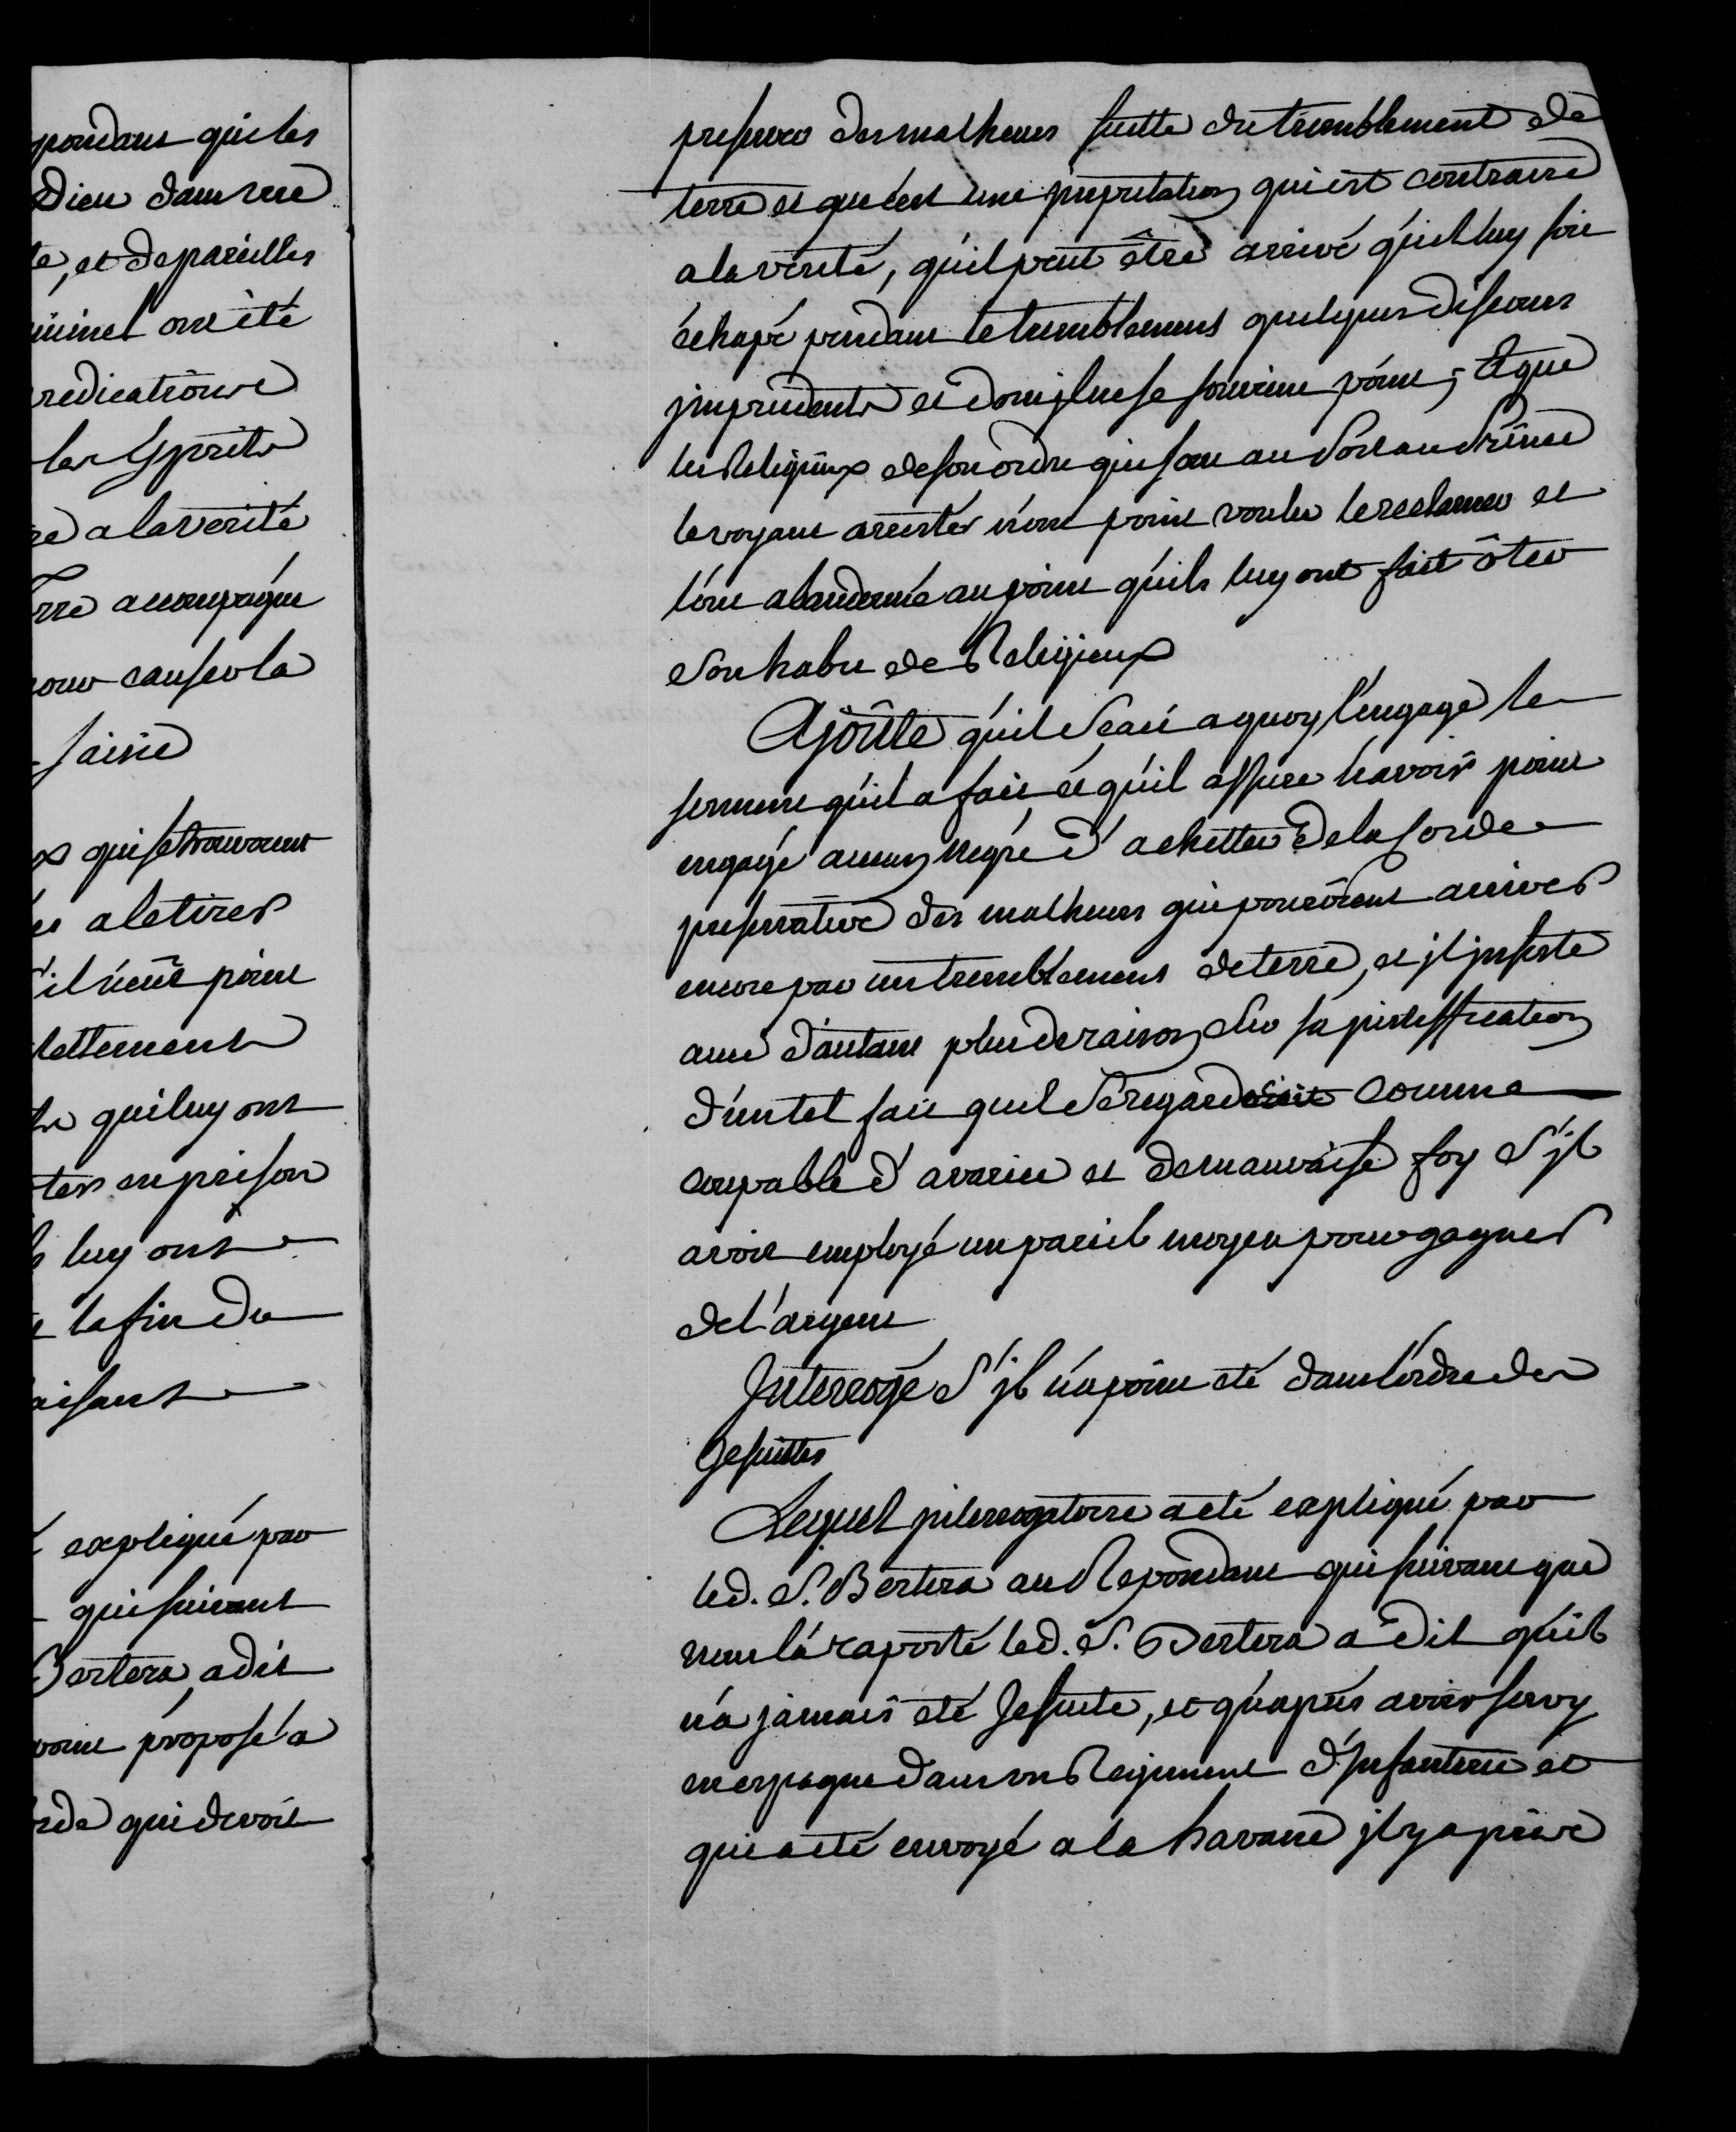 pondant que les
Dieu dans une
te, et de pareilles
criminel ont été
redications
les Esprits
re a la verité
rre accompagne
pour causer la
saisie
x qui se trouverent
es a le tirer
s'il n'eut point
lettement
qui luy ont
ter en prison
s luy ont
la fin du
aisant
é expliqué par
qui suivant
Bertera a dit
point proposé a
rde qui devoit
preserver des malheurs suitte du tremblement de
terre et que c'est une jmputation qui est contraire
a la verité, qu'il peut être arrivé qu'il luy soit
échapé pendant le tremblement quelques discours
jmprudents et dont jl ne se souvient point, Et que
les Religieux de son ordre qui sont au Port au Prince
le voyant arrester n'ont point voulu le reclamer et
l'ont abandonné au point qu'ils luy ont fait ôter
son habit de Religieux
Ajoûte qu'il Scait a quoy l'engage le
serment qu'il a fait et qu'il assure n'avoir point
engagé aucun negre d'achetter de la corde
preservative des malheurs qui pouroient arriver
encore par un tremblement de terre, et jl jnsiste
avec d'autant plus de raison sur sa justiffication
d'un tel fait qu'il Se regarderoit comme
coupable d'avarice et de mauvaise foy S'jl
avoit employé un pareil moyen pour gagner
de l'argent
Jnterrogé S'jl n'a point eté dans l'ordre des
Jesuittes
Lequel jnterrogatoire a eté expliqué par
led. S. Bertera au Repondant qui suivant que
nous l'a raporté led. S. Bertera a dit qu'il
n'a jamais eté Jesuite, et qu'apres avoir servy
en espagne dans un Regiment d'Jnfanterie et
qui a eté envoyé a la havane jl y a prisé